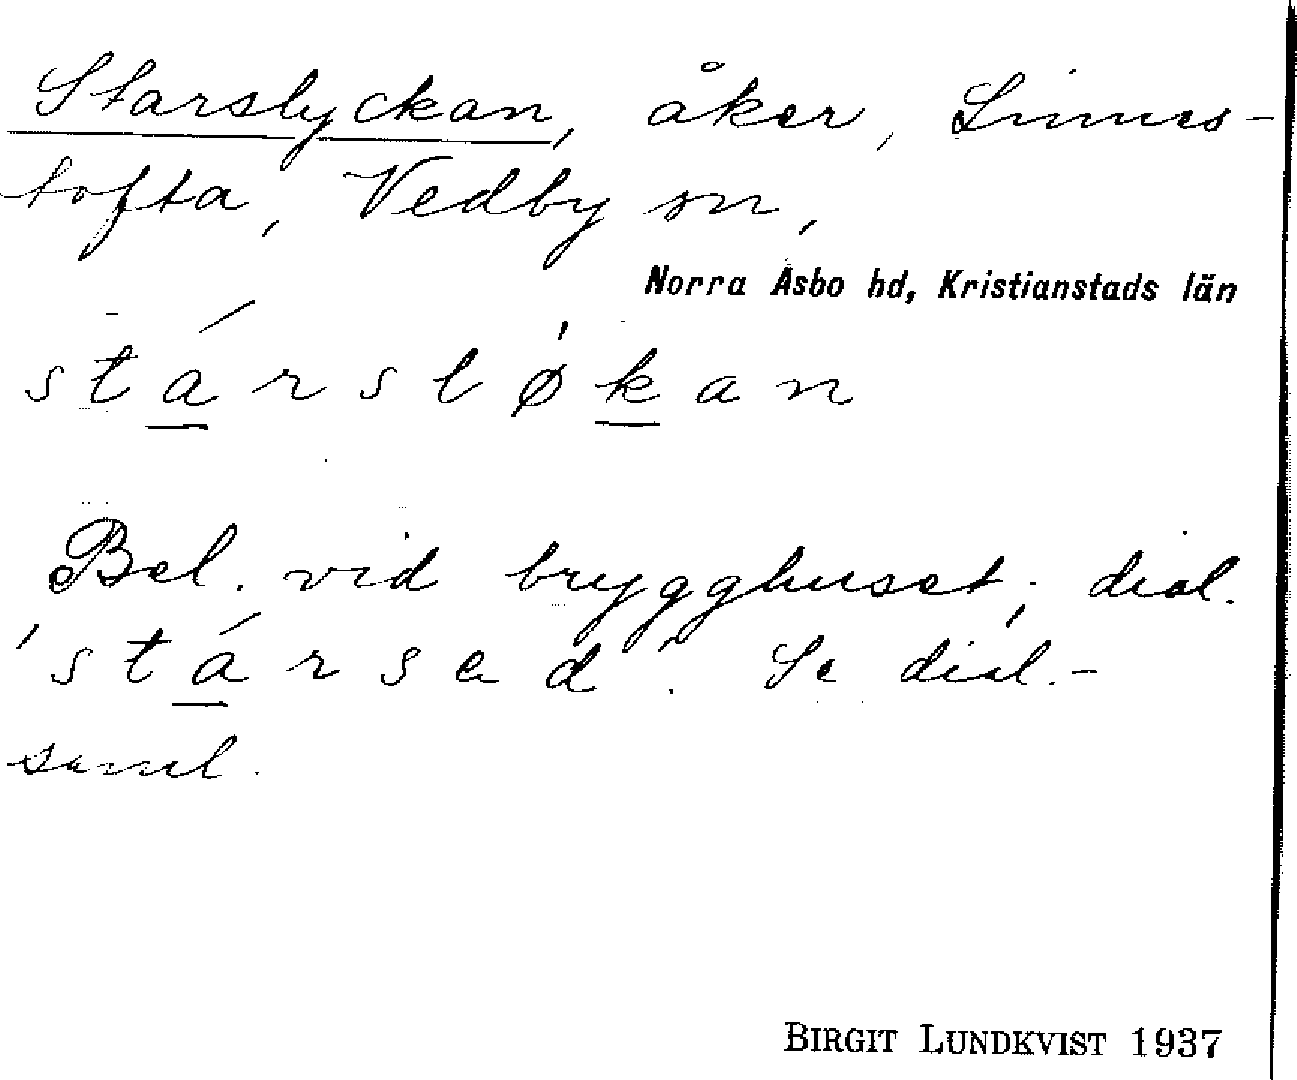 Starslyckan, åker, Linnes-
tofta, Vedby sn,
Norra Åsbo hd, Kristianstads län
stársløkan
Bel. vid brygghuset; dial.
'stársed'. Se dial.-
saml.
BIRGIT LUNDKVIST 1937